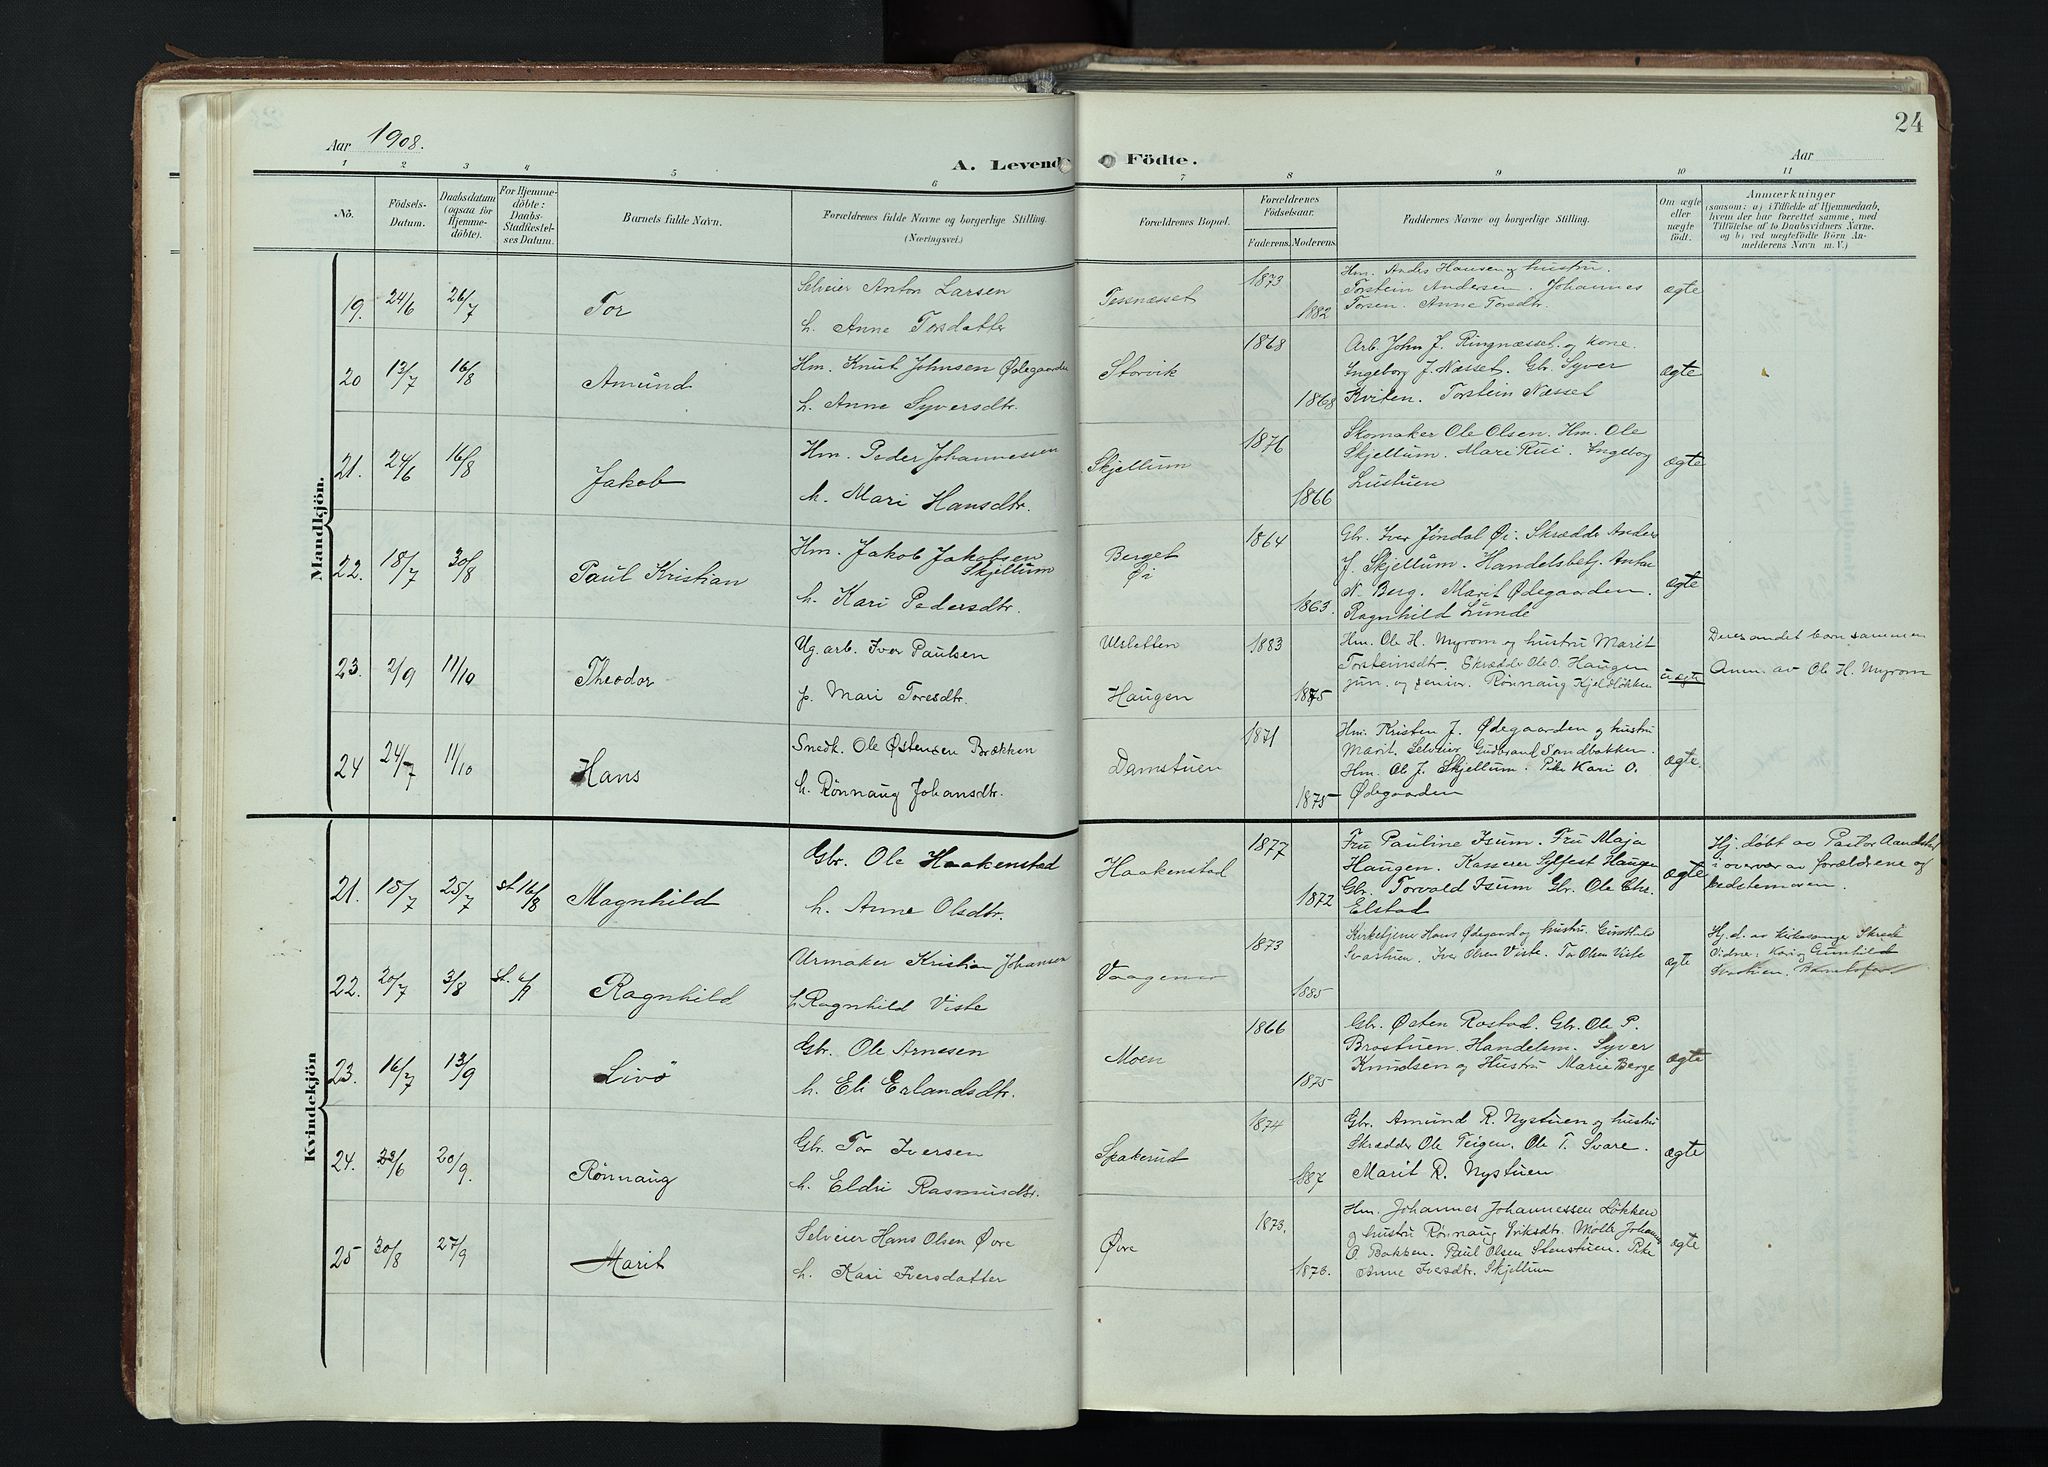 24
Aar 1908.
Aar
A. Levende Födte.
1 2 3 4 5 6 7 8 9 10 11
No.
Födsels-
Datum.
Daabsdatum
(ogsaa for
Hjemme-
döbte).
For Hjemme-
döbte:
Daabs-
Stadfæstel-
ses Datum.
Barnets fulde Navn.
Forældrenes fulde Navne og borgerlige Stilling.
(Næringsvei.)
Forældrenes Bopæl.
Forældrenes
Födselsaar.
Faderens. Moderens.
Faddernes Navne og borgerlige Stilling.
Om ægte
eller
uægte
födt.
Anmærkninger
(saasom: a) i Tilfælde af Hjemmedaab,
hvem der har forrettet samme, med
Tilföielse af to Daabsvidners Navne,
og b) ved uægtefödte Börn An-
melderens Navn m. V.)
Mandkjön.
19. 24/6 26/7 Tor
Selveier Anton Larsen
h. Anne Torsdatter
Tessnæsset
1873
1882
Hm. Andes Hansen og hustru.
Torstein Andersen. Johannes
Torsen. Anne Torsdtr.
ægte
20 13/7 16/8 Amund
Hm. Knut Johnsen Ødegaarden
h. Anne Syversdtr.
Storvik
1868
1868
Arb. John J. Ringnæsset og kone.
Ingeborg J. Næsset. Gbr. Syver
Kviten. Torstein Næsset
ægte
21. 24/6 16/8 Jakob
Hm. Peder Johannessen
h. Mari Hansdtr.
Skjellum
1876
1866
Skomaker Ole Olsen. Hm. Ole
Skjellum. Mari Rui. Ingeborg
Lustuen
ægte
22. 18/7 30/8 Paul Kristian
Hm. Jakob Jakobsen
Skjellum
h. Kari Pedersdtr.
Berget
Øi
1864
1863.
Gbr. Iver Jøndal Øi. Skrædder Anders
J. Skjellum. Handelsbetj. Anton
N. Berg. Marit Ødegaarden.
Ragnhild Lunde
ægte
23. 2/9 11/10 Theodor
Ug. arb. Iver Paulsen
p. Mari Toresdtr.
Ulsletten
Haugen
1883
1875
Hm. Ole H. Myrom og hustru Marit
Torsteinsdtr. Skrædder Ole O. Haugen
jun. og senior. Rønnaug Kjeldløkken
uægte
Deres andet barn sammen
Anm. av Ole H. Myrom
24 24/7 11/10 Hans
Snedk. Ole Østensen Brækken
h. Rønnaug Johansdtr.
Damstuen
1871
1875
Hm. Kristen J. Ødegaarden og hustru
Marit. Selveier Gudbrand Sandbakken.
Hm. Ole J. Skjellum. Pike Kari O.
Ødegaarden
ægte.
Kvindekjön
21. 15/7 25/7 st 16/8 Magnhild
Gbr. Ole Haakenstad
h. Anne Olsdtr.
Haakenstad
1877
1872
Fru Pauline Isum. Fru Maja
Haugen. Kasserer Sylfest Haugen
Gbr. Torvald Isum Gbr. Ole Chr.
Elstad
ægte
Hj. døbt av Pastor Aandstad
i overvær av forældrene og
bedstemoren.
22. 20/7 3/8 St. Ragnhild
Urmaker Kristian Johansen
h. Ragnhild Viste
Vaagenes
1873
1885
Kirketjener Hans Ødegaard og hustru. Gunhild
Svastuen. Iver Olsen Viste. Tor Olsen Viste
ægte
Hj. d. av kirkesanger Skrede
Vidne: Kari og Gunhild
Svastuen.
23. 16/7 13/9 Livø
Gbr. Ole Arnesen
h. Eli Erlandsdtr.
Moen
1866
1875
Gbr. Østen Rostad. Gbr. Ole P.
Brostuen. Handelsm. Syver
Knudsen og Hustru Marie Berge
ægte
24. 23/6 20/9. Rønnaug
Gbr. Tor Iversen
h. Eldri Rasmusdtr.
Spakerud
1874
187
Gbr. Amund R. Nystuen og hustru
Skrædder Ole Teigen. Ole T. Svare.
Marit R. Nystuen
ægte
25 30/8 27/9 Marit
Selveier Hans Olsen Øvre
h. Kari Iversdatter
Øvre
1873.
1873.
Hm. Johannes Johannessen Løkken
og hustru Rønnaug Eriksdtr. Møller Johannes
O. Bakken. Paul Olsen Stenstuen. Pike
Anne Iversdtr. Skjellum
ægte